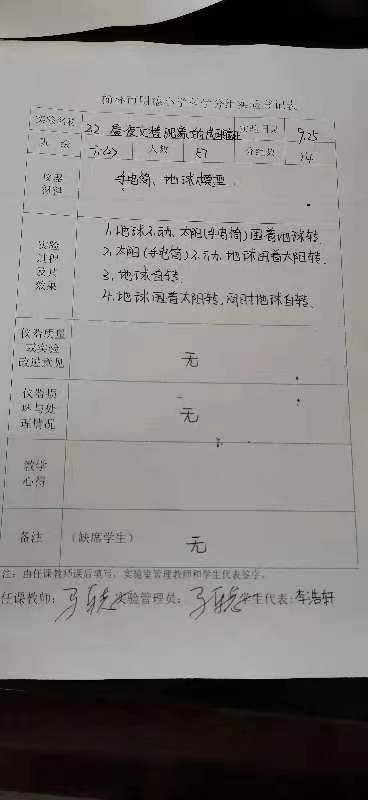 实验名称 2.2 昼夜交替现象 实验日期 9.25
人数 57 分组数 14
仪器 手电筒、地球模型、
实验过程及其效果
1. 地球不动、太阳(手电筒)围着地球转.
2. 太阳(手电筒)不动、地球围着太阳转.
3. 地球自转.
4. 地球围着太阳转,同时地球自转.
仪器质量或实验改进意见 无
仪器损坏与处理情况 无
教学心得
备注 (缺席学生) 无
注:由任课教师课后填写,实验室管理教师和学生代表签字。
任课教师: 实验管理员: 学生代表: 李浩轩